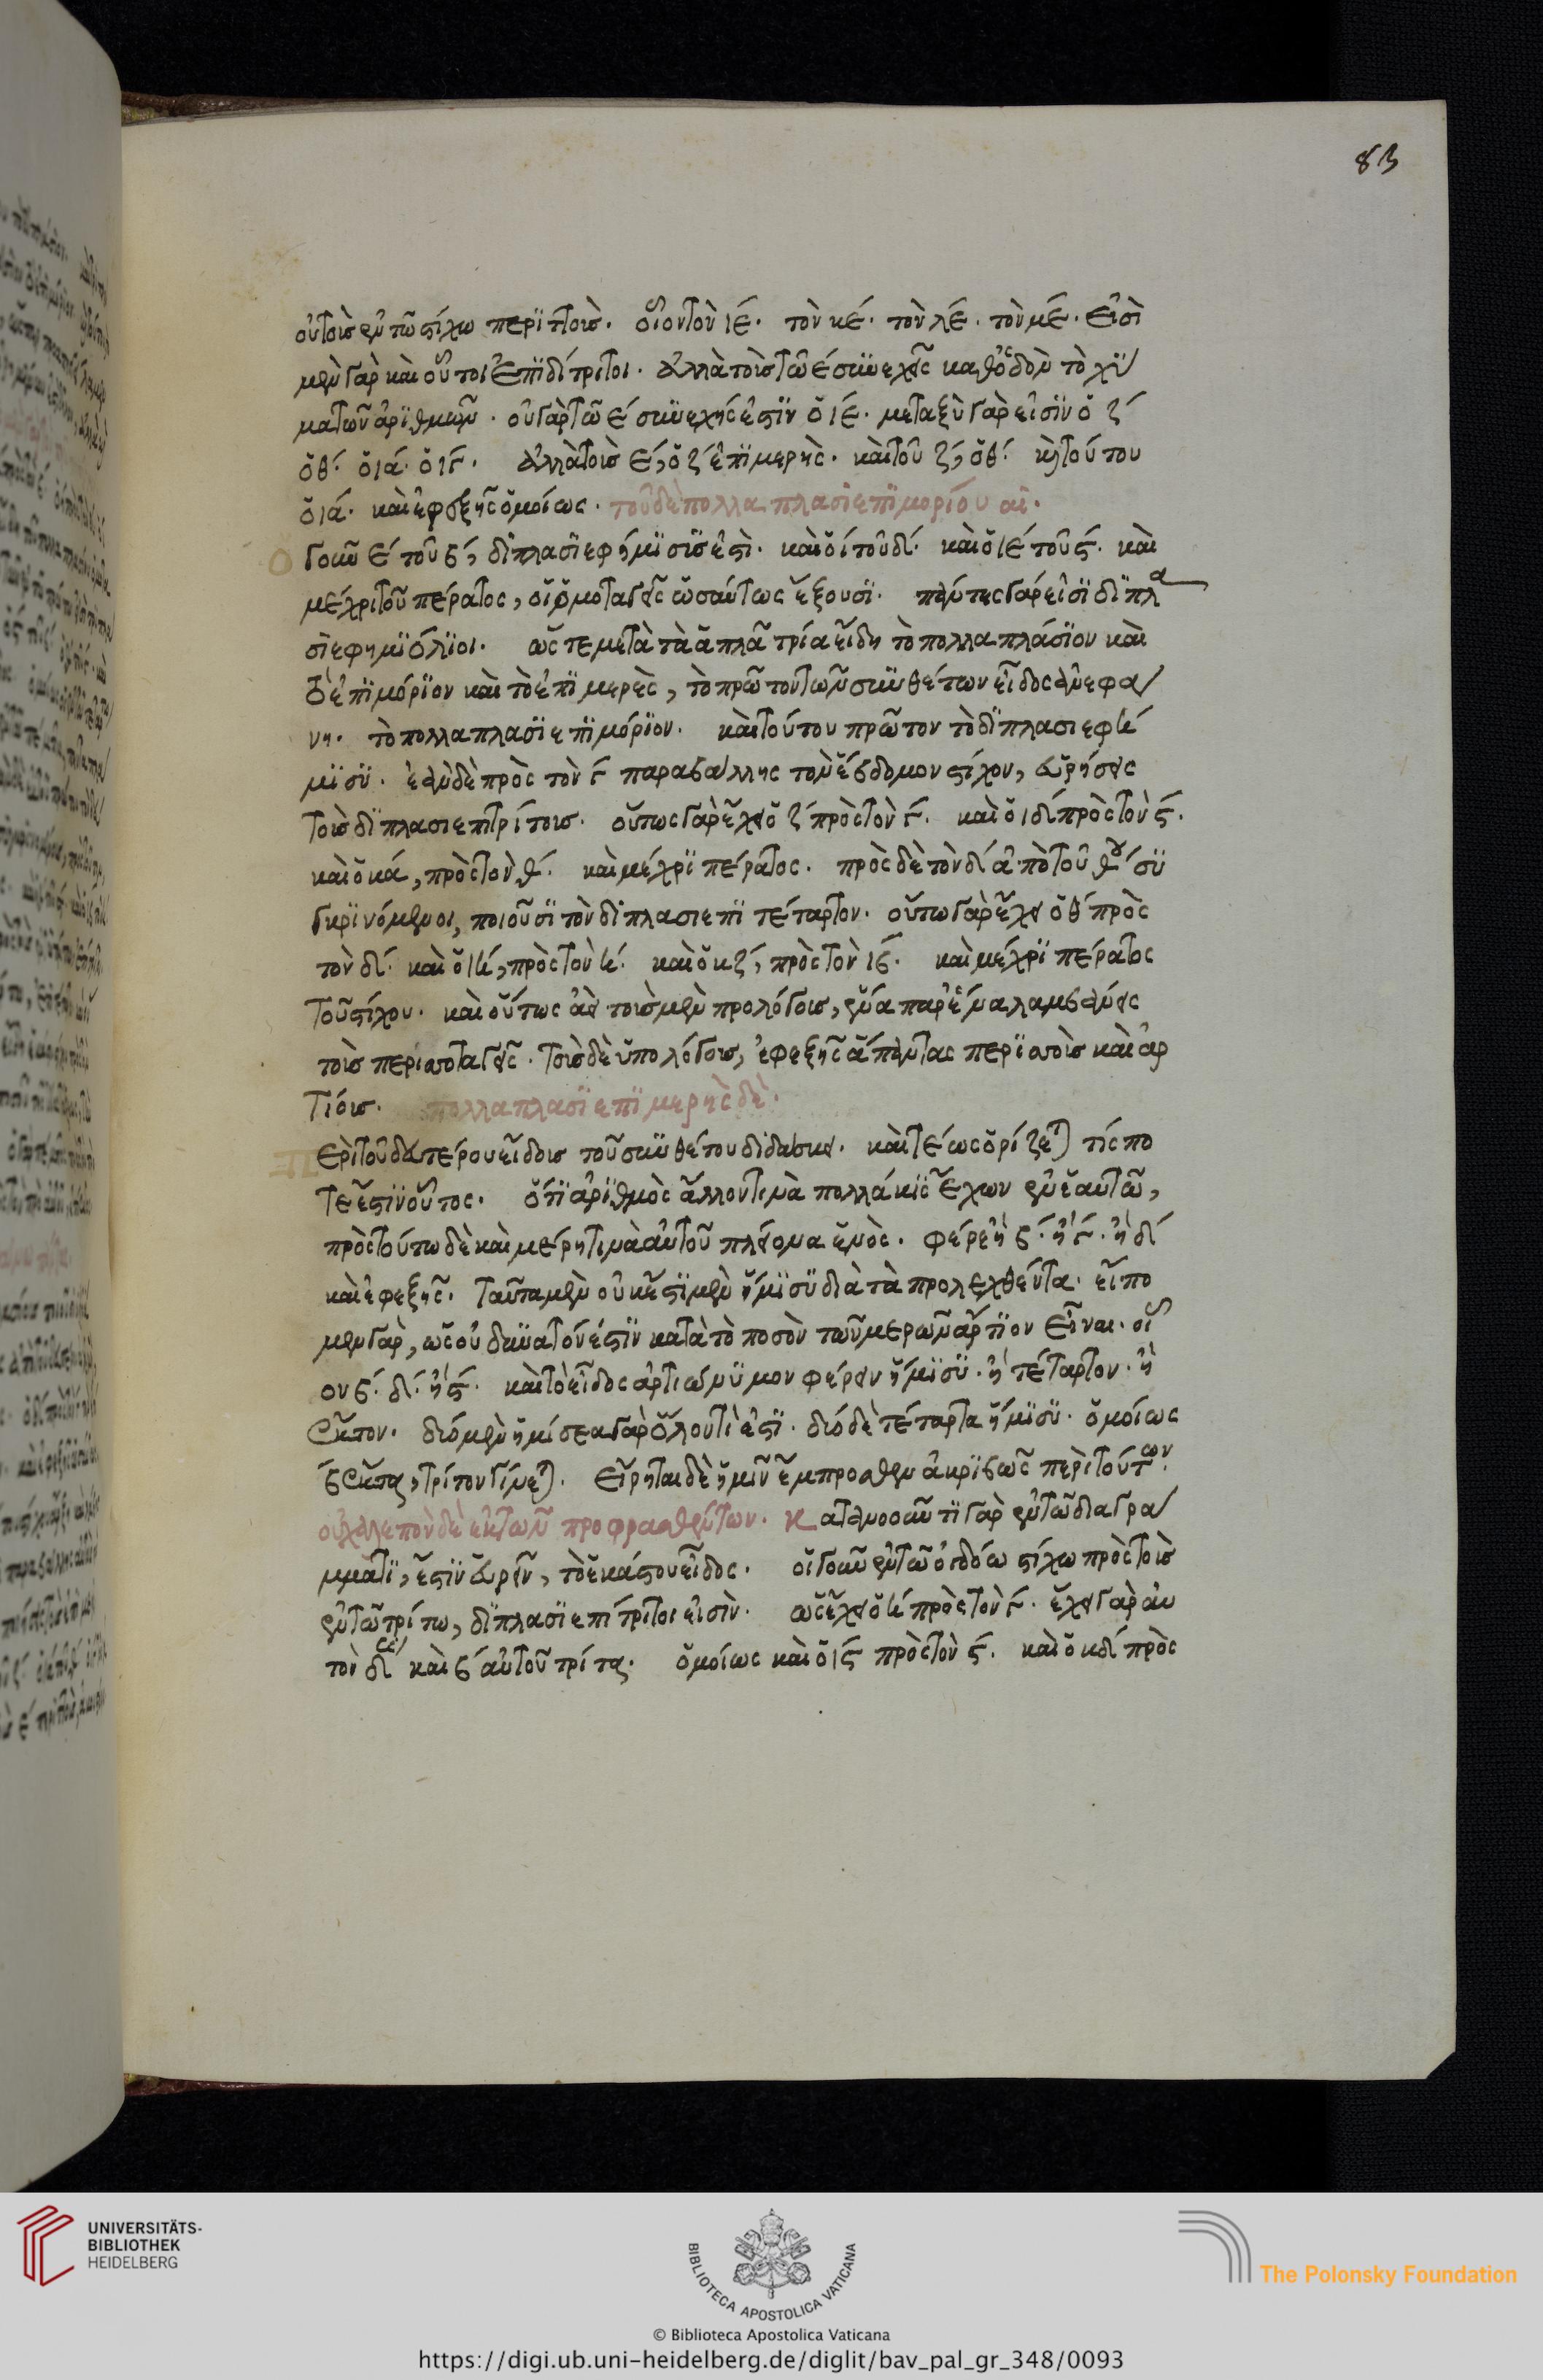 83
αὐτοῖς ἐν τῶ στίχω περιττοῖς. οἷον τὸν ιε´. τὸν κε´. τὸν λε´. τὸν με´. εἰσὶ
μὲν γὰρ καὶ οὗτοι ἐπιδίτριτοι. ἀλλὰ τοῖς τῶ ε´ συνεχεῖς καθ᾽ ὁδὸν τὸ
ματῶν ἀριθμῶν. οὐ γὰρ τῶ ε´ συνεχής ἐστιν ὁ ιε´. μεταξὺ γὰρ εἰσὶν ὁ ζ´
ὁ θ´. ὁ ια´. ὁ ιγ´. ἀλλὰ τοῖς ε´, ὁ ζ´ ἐπιμερὴς. καὶ τοῦ ζ´, ὁ θ´. καὶ τούτου
ὁ ια´. καὶ ἐφεξῆς ὁμοίως. τοῦ δὲ πολλαπλασιεπιμορίου αἱ.
Ὁ γοῦν ε´ τοῦ β´, διπλασιεφήμισίς ἐστὶ. καὶ ὁ ι´ τοῦ δ´. καὶ ὁ ιε´ τοῦ ς´. καὶ
μέχρι τοῦ πέρατος, οἱ ὁμοταγεῖς ὡσαύτως ἕξουσι. πάντες γάρ εἰσι διπλα
σιεφημιόλιοι. ὥς τε μετὰ τὰ ἁπλᾶ τρία εἴδη τὸ πολλαπλάσιον καὶ
τὸ ἐπιμόριον καὶ τὸ ἐπιμερὲς, τὸ πρῶτον τῶν συνθέτων εἶδος ἀνεφά
νη. τὸ πολλαπλασιεπιμόριον. καὶ τούτου πρῶτον τὸ διπλασιεφή
μισυ. ἐὰν δὲ πρὸς τὸν γ´ παραβάλλης τὸν ἕβδομον στίχον, εὑρήσεις
τοῖς διπλασιεπιτρίτοις. οὕτως γὰρ ἔχει ὁ ζ´ πρὸς τὸν γ´. καὶ ὁ ιδ´ πρὸς τὸν ς´.
καὶ ὁ κα´, πρὸς τὸν θ´. καὶ μέχρι πέρατος. πρὸς δὲ τὸν δ´ ἀπὸ τοῦ θ´ συ
γκρινόμενοι, ποιοῦσι τὸν διπλασιεπιτέταρτον. οὕτω γὰρ ἔχει ὁ θ´ πρὸς
τὸν δ´. καὶ ὁ ιη´, πρὸς τὸν η´. καὶ ὁ κζ´, πρὸς τὸν ιβ´. καὶ μέχρι πέρατος
τοῦ στίχου. καὶ οὕτως ἀεὶ τοῖς μὲν προλόγοις, ἕνα παρ᾽ ἕνα λαμβάνεις
τοῖς περισσοταγεῖς. τοῖς δὲ ὑπολόγοις, ἐφεξῆς ἅπαντας περισσοῖς καὶ ἀρ
τίοις. πολλαπλασιεπιμερὴς δὲ.
Περὶ τοῦ δευτέρου εἴδους τοῦ συνθέτου διδάσκει. καὶ τέως ὁρίζεται τίς πο
τέ ἐστιν οὗτος. ὅτι ἀριθμὸς ἄλλον τινὰ πολλάκις ἔχων ἐν ἑαυτῶ,
πρὸς τούτω δὲ καὶ μέρη τινὰ αὐτοῦ πλείονα ἑνὸς. φέρε ἢ β´. ἢ γ´. ἢ δ´
καὶ ἐφεξῆς. ταῦτα μὲν οὐκ ἔστι μὲν ἥμισυ διὰ τὰ προλεχθέντα. εἴπο
μεν γὰρ, ὡς οὐ δυνατόν ἐστιν κατὰ τὸ ποσὸν τῶν μερῶν ἄρτιον εἶναι. οἷ
ον β´. δ´. ἢ ς´. καὶ τὸ εἶδος ἀρτιώνυμον φέρειν ἥμισυ. ἢ τέταρτον. ἢ
ἕκτον. δύο μὲν ἡμίσεα γὰρ ὅλον τὶ ἐστι. δύο δὲ τέταρτα ἥμισυ. ὁμοίως
β´ ἕκτα, τρίτον γίνεται. εἴρηται δὲ ἡμῖν ἔμπροσθεν ἀκριβῶς περὶ τούτων.
οὐ χαλεπὸν δὲ ἐκ τῶν προφρασθέντων. κατανοοῦντι γὰρ ἐν τῶ διαγρά
μματι, ἔστιν εὑρεῖν, τὸ ἑκάστου εἶδος. οἱ γοῦν ἐν τῶ ὀγδόω στίχω πρὸς τοῖς
ἐν τῶ τρίτω, διπλασιεπιτριτοι εἰσὶν. ὡς ἔχει ὁ η´ πρὸς τὸν γ´. ἔχει γὰρ αὐ
τὸν δὶς καὶ β´ αὐτοῦ τρίτα. ὁμοίως καὶ ὁ ις´ πρὸς τὸν ς´. καὶ ὁ κδ´ πρὸς
UNIVERSITÄTS-
BIBLIOTHEK
HEIDELBERG
BIBLIOTECA APOSTOLICA VATICANA
The Polonsky Foundation
© Biblioteca Apostolica Vaticana
https://digi.ub.uni-heidelberg.de/diglit/bav_pal_gr_348/0093